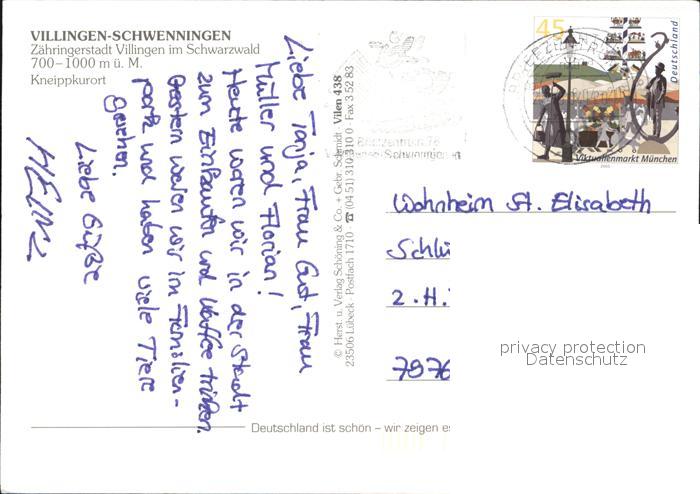 VILLINGEN-SCHWENNINGEN
Zähringerstadt Villingen im Schwarzwald
700–1000 m ü. M.
Kneippkurort
Liebe Tanja, Frau Gust, Frau
Müller und Florian!
Heute waren wir in der Stadt
zum Einkaufen und Kaffee trinken.
Gestern waren wir im Familien-
park und haben viele Tiere
gesehen.
Liebe Grüße
HEINZ
© Herst. u. Verlag Schöning & Co. + Gebr. Schmidt · Vilen 438
23506 Lübeck · Postfach 1710 · ☎ (04 51) 310 310 0 · Fax 3 52 83
Briefzentrum 78
Schwenningen
BRIEFZENTRUM
45
Deutschland
Viktualienmarkt München
Wohnheim St. Elisabeth
Schlü
2. H.
7976
privacy protection
Datenschutz
Deutschland ist schön – wir zeigen es